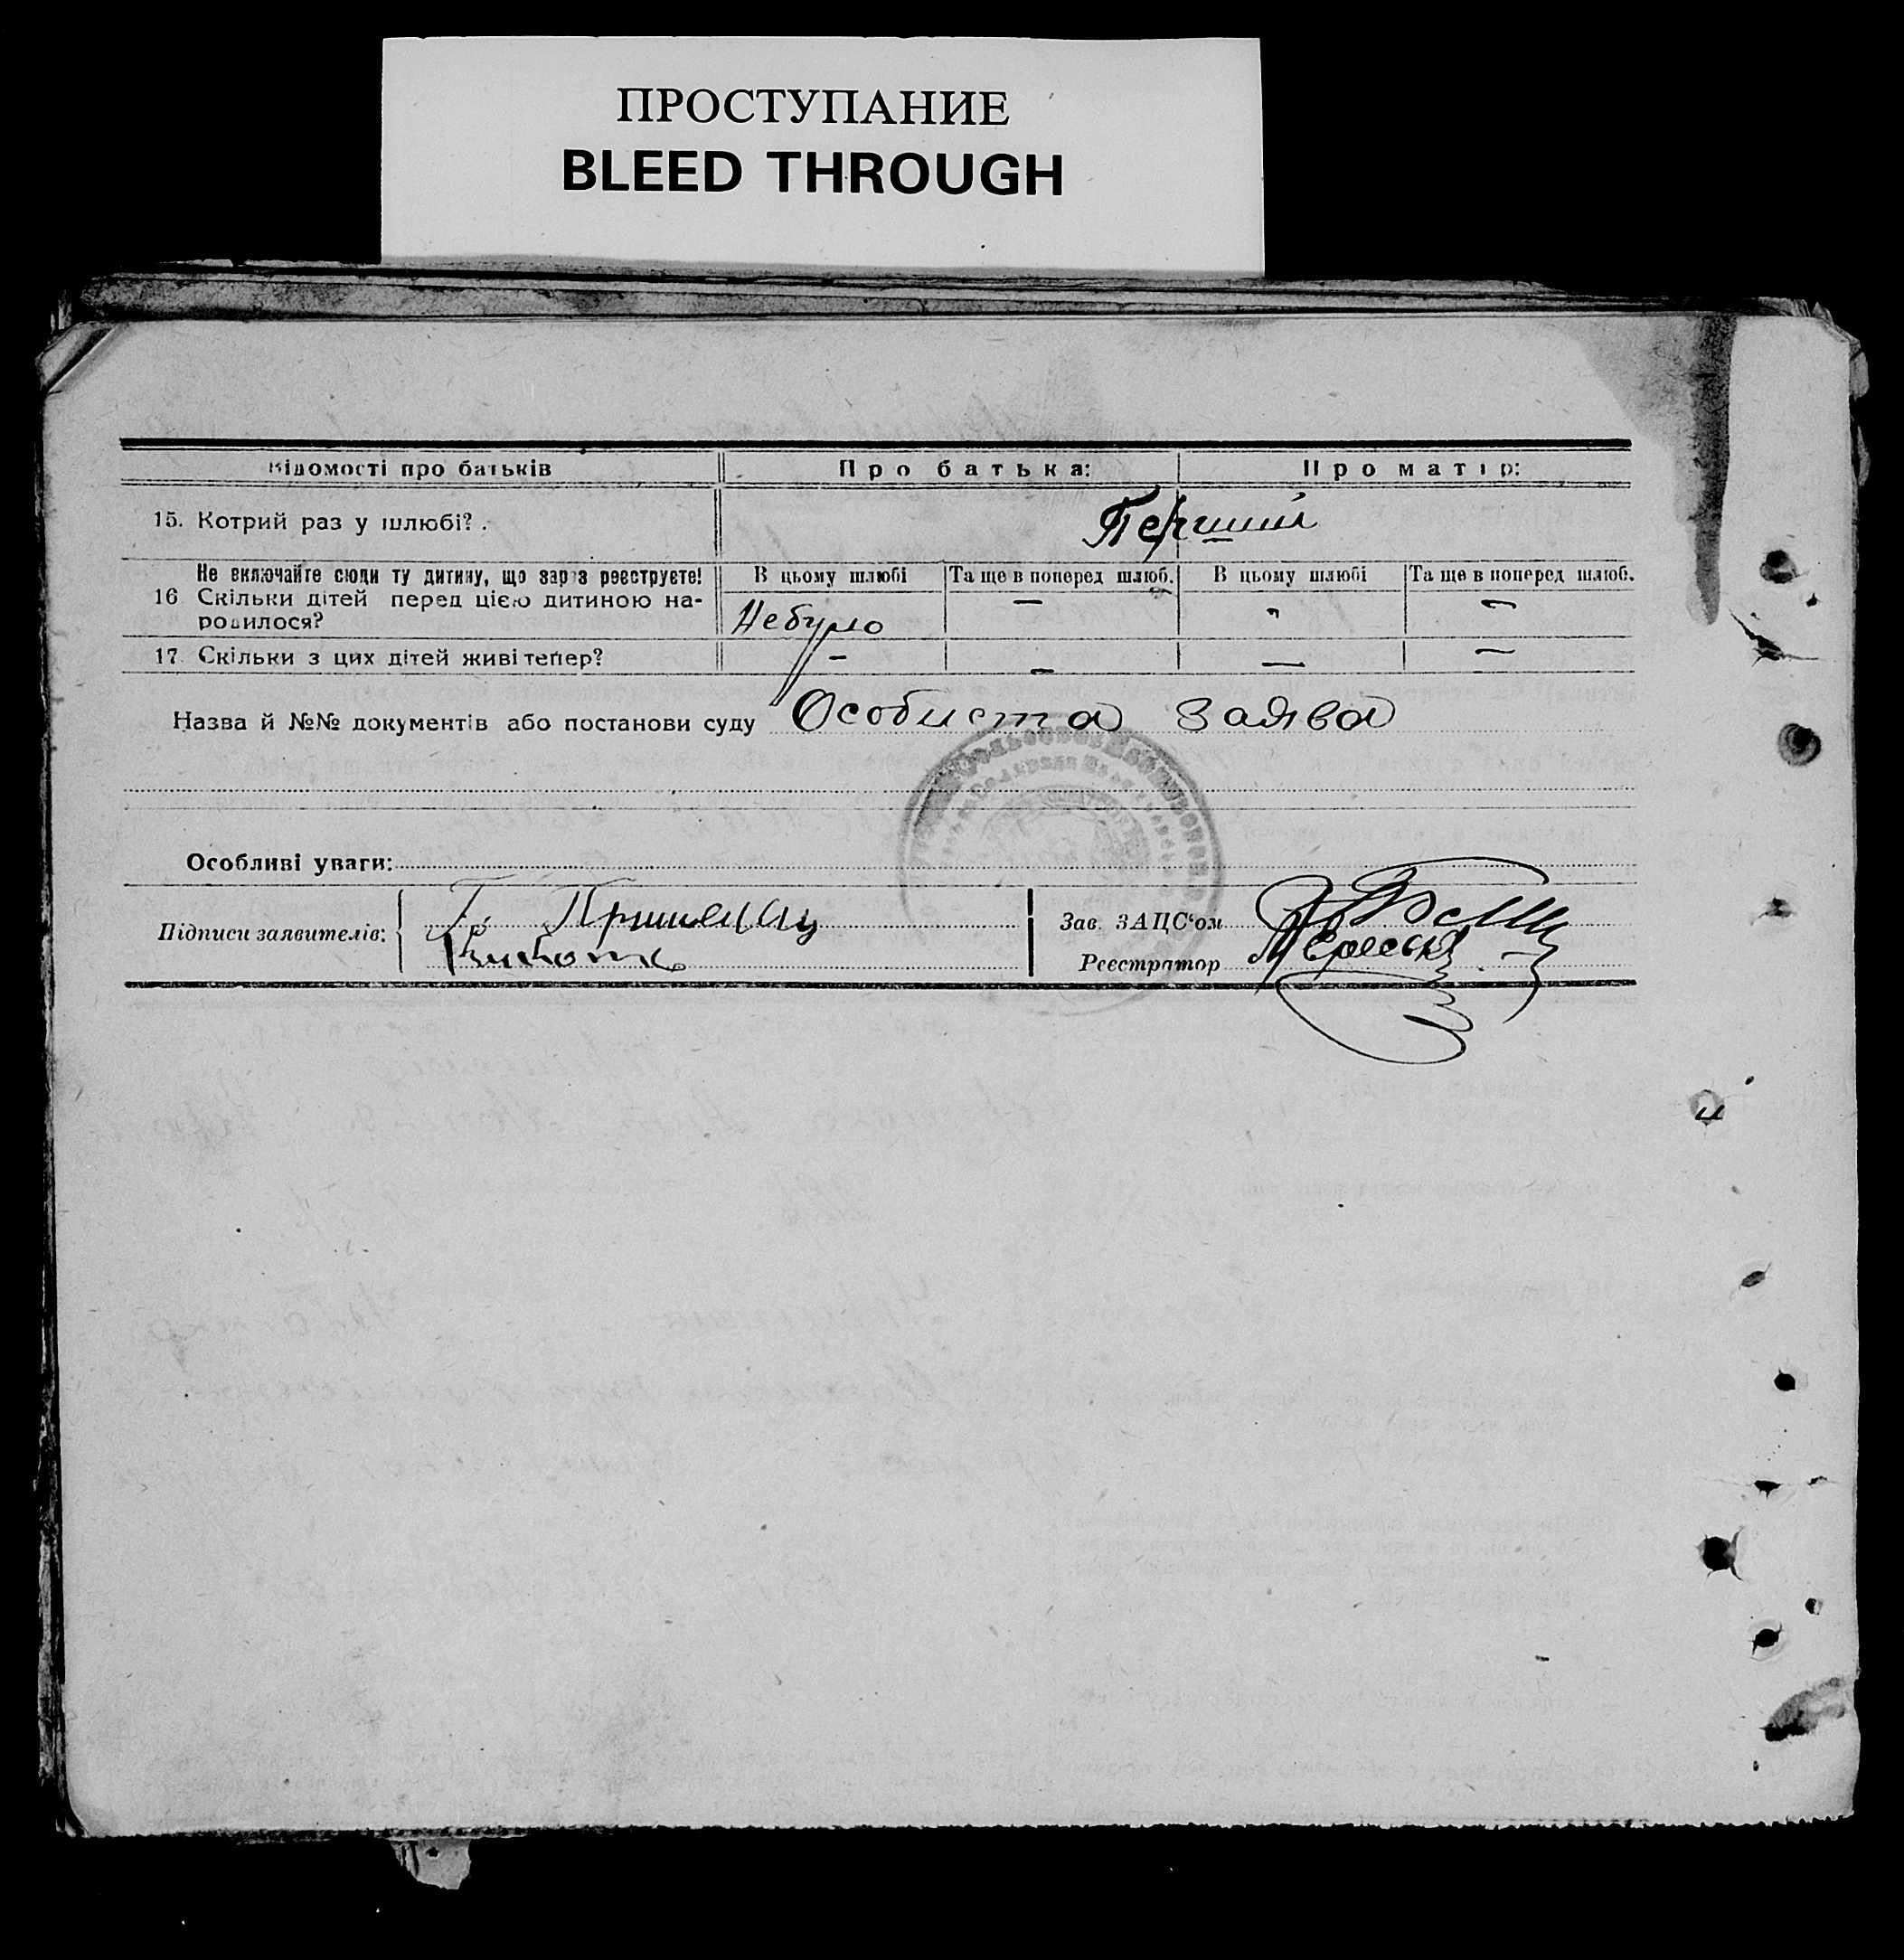 ПРОСТУПАНИЕ
BLEED THROUGH
Відомості про батьків
Про батька:
Про матір:
15. Котрий раз у шлюбі? .
Перший
Не включайте сюди ту дитину, що зараз реєструєте!
16 Скільки дітей перед цією дитиною на-
родилося?
В цьому шлюбі
Та ще в поперед шлюб.
В цьому шлюбі
Та ще в поперед шлюб.
Небуло
—
"
—
17. Скільки з цих дітей живі тепер?
—
—
—
—
Назва й №№ документів або постанови суду Особиста заява
Особливі уваги:
Підписи заявителів:
Зав. ЗАЦС'ом
Реєстратор